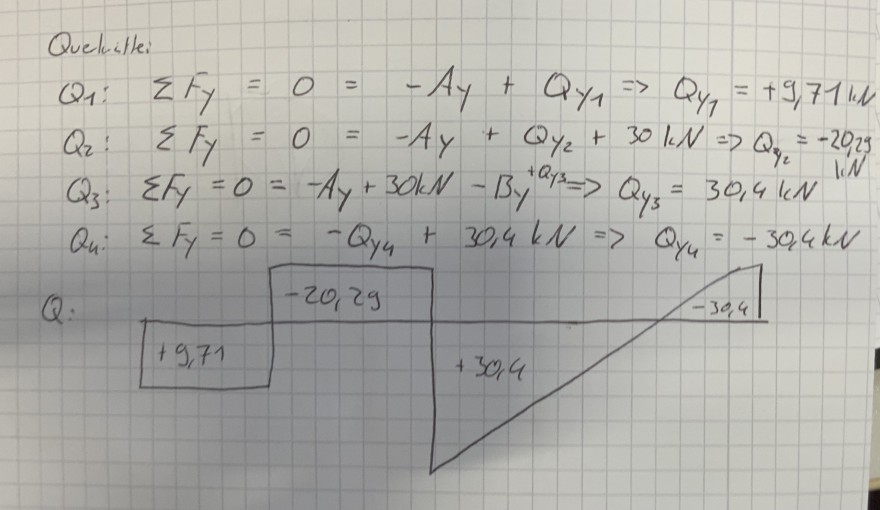 Querkräfte:
Q1: ΣFy = 0 = -Ay + Qy1 => Qy1 = +9,71 kN
Q2: ΣFy = 0 = -Ay + Qy2 + 30 kN => Qy2 = -20,29 kN
Q3: ΣFy = 0 = -Ay + 30kN - By +Qy3 => Qy3 = 30,4 kN
Q4: ΣFy = 0 = -Qy4 + 30,4 kN => Qy4 = -30,4 kN
Q:
-20,29
-30,4
+9,71
+30,4